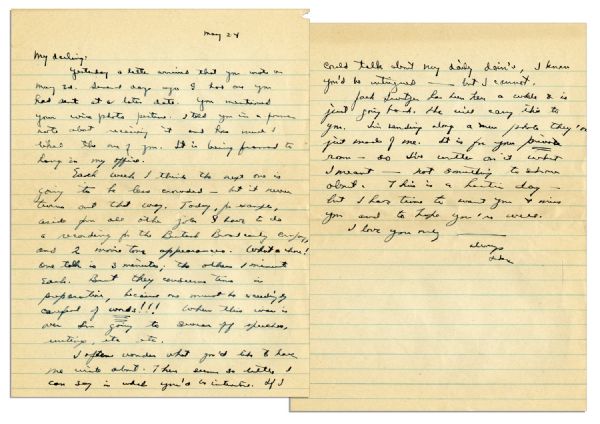 May 24
My darling:
Yesterday a letter arrived that you wrote on
May 20. Several days ago I had one you
had sent at a later date. You mentioned
your wire photo picture. I told you in a previous
note about receiving it and how much I
liked the one of you. It is being framed to
hang in my office.
Each week I think the next one is
going to be less crowded — but it never
turns out that way. Today, for example,
aside from all other jobs I have to do
a recording for the British Broadcasting Company,
and 2 movie tone appearances. What a chore!
One talk is 3 minutes; the others 1 minute
each. But they consume time in
preparation, because one must be exceedingly
careful of words!!! When this war is
over I'm going to swear off speeches,
writing, etc etc.
I often wonder what you'd like to have
me write about. There seems so little I
can say in which you'd be interested. If I
could talk about my daily doin's, I know
you'd be intrigued — but I cannot.
Jack has been here a while & is
just going back. He will carry this to
you. I'm sending along a new photo they've
just made of me. It is for your private
room — so I've written on it what
I meant — not something to show
about. This is a hectic day —
but I have time to want you & miss
you and to hope you're well.
I love you only —
always
Ike